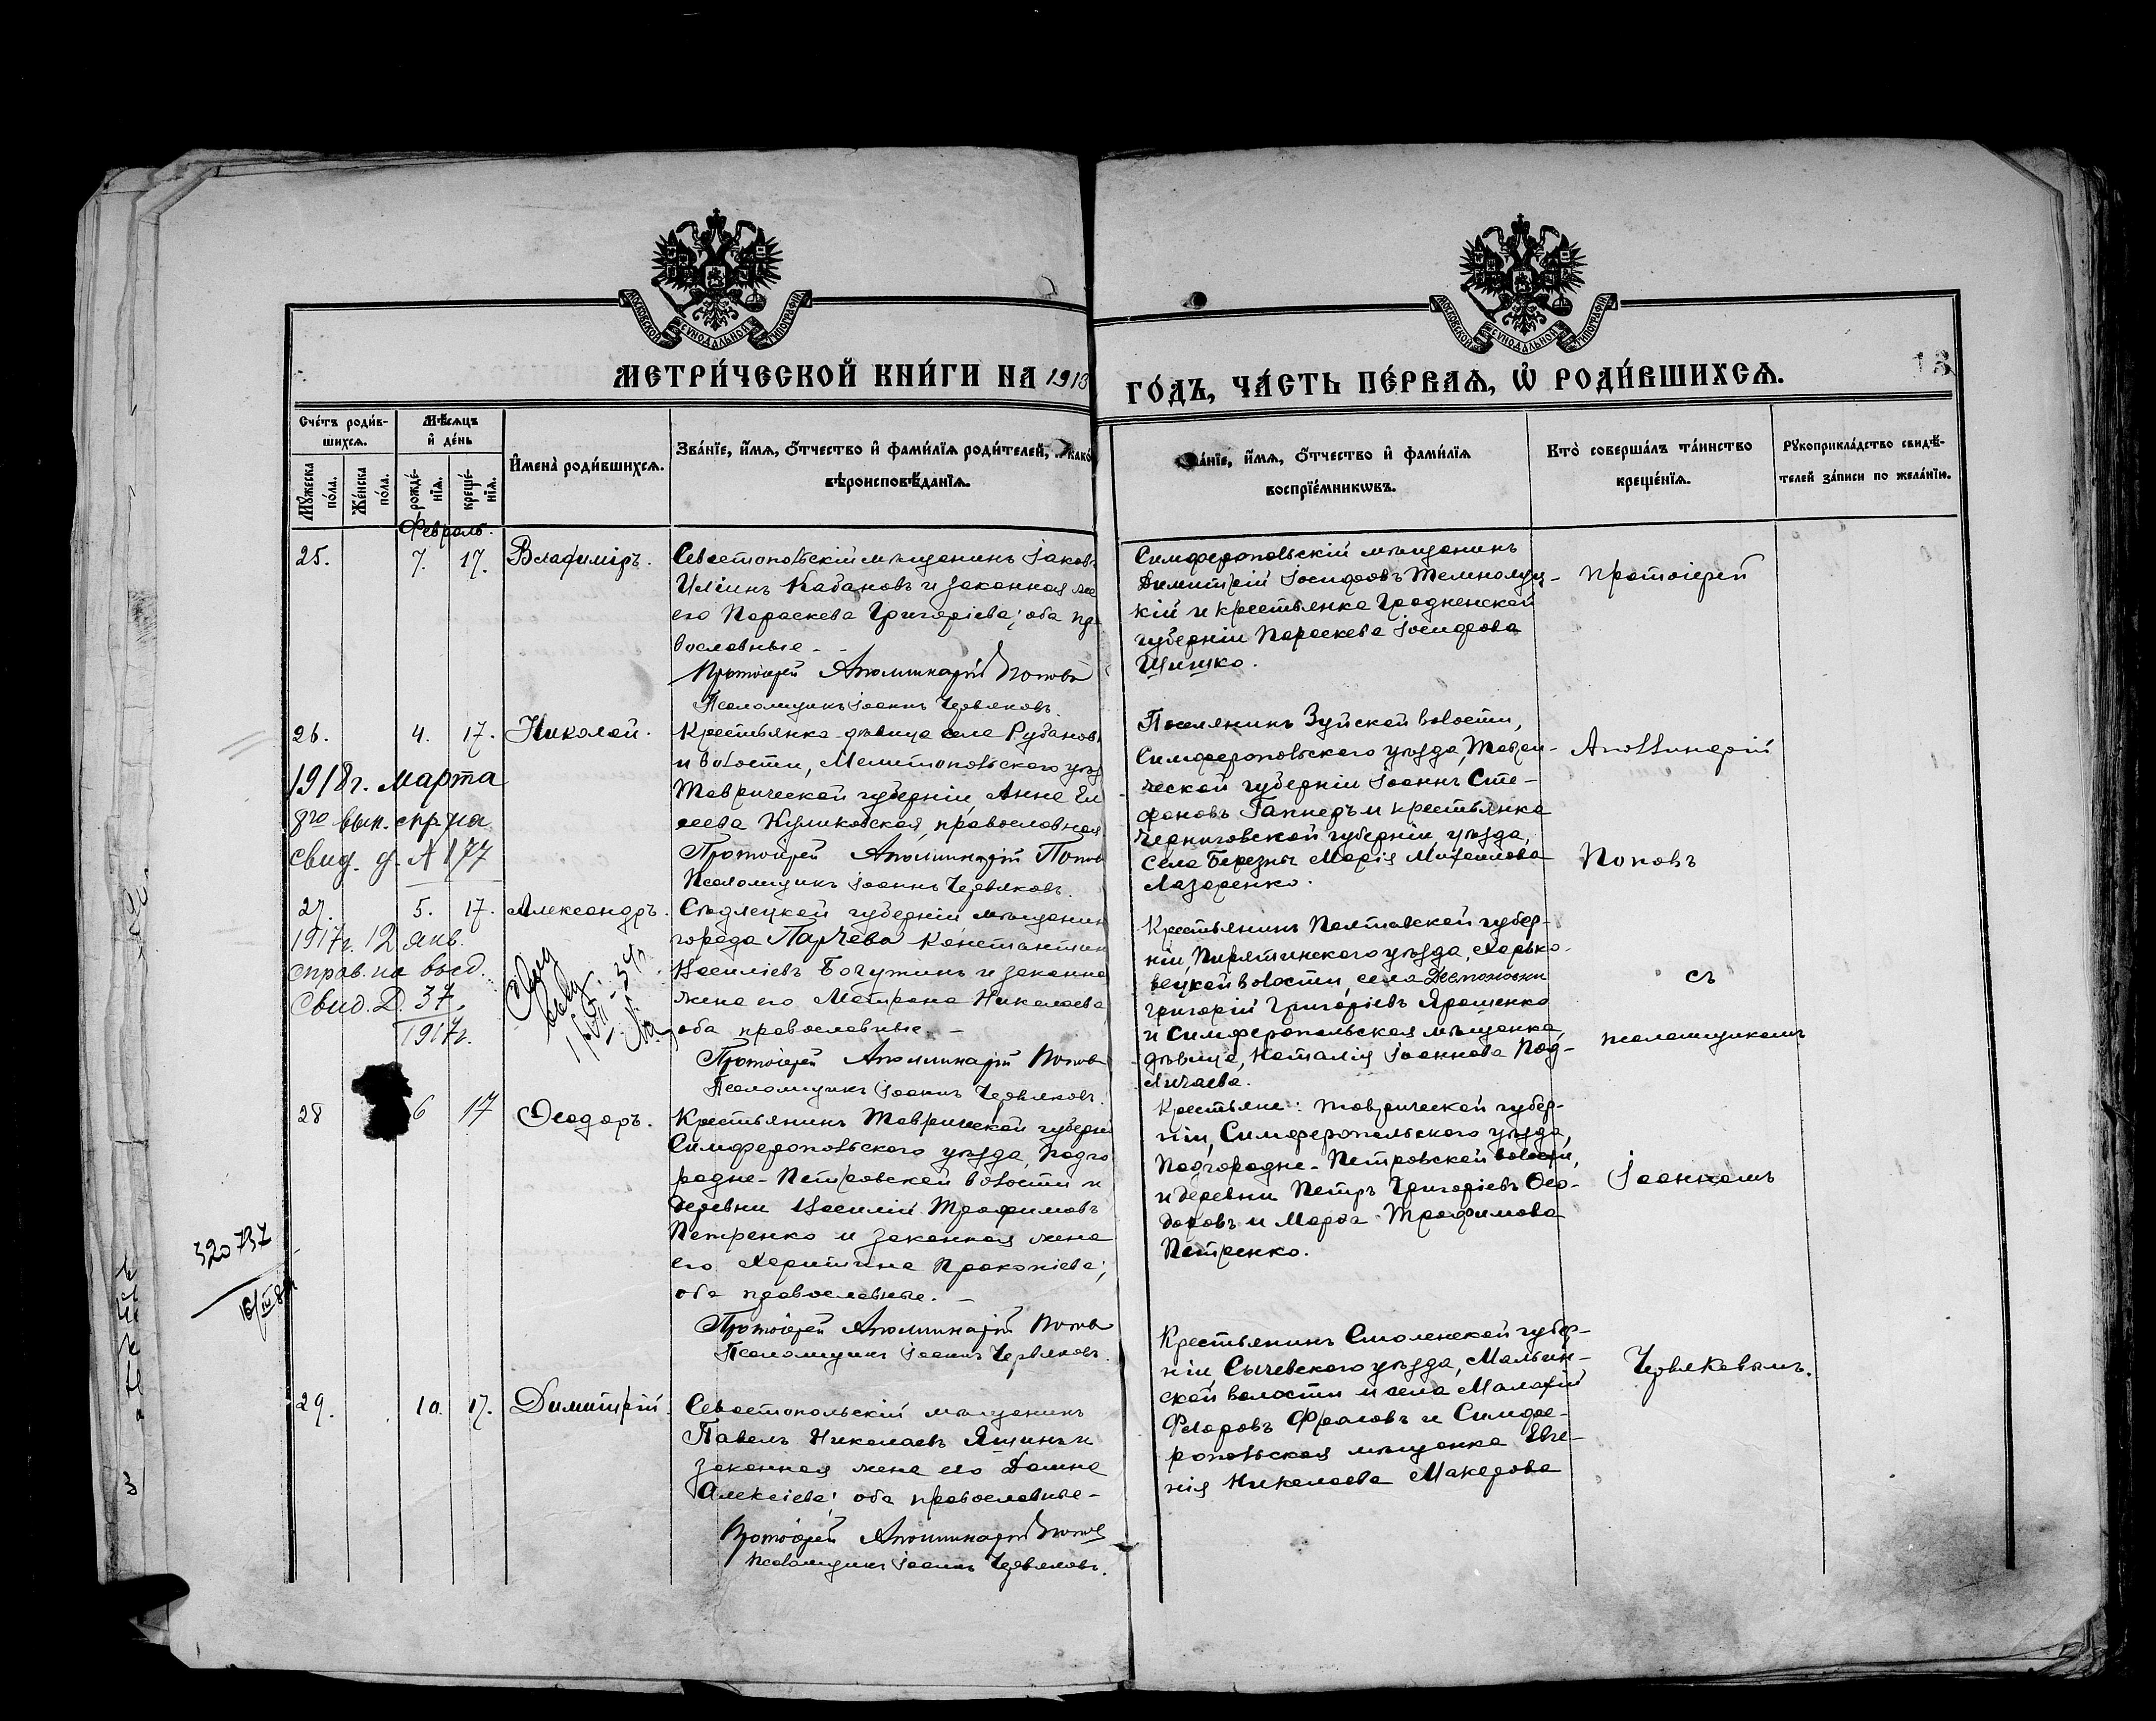 МОСКОВСКОЙ СѴНОДАЛЬНОЙ ТИПОГРАФІИ
МОСКОВСКОЙ СѴНОДАЛЬНОЙ ТИПОГРАФІИ
МЕТРИ́ЧЕСКОЙ КНИ́ГИ НА 1913
ГО́ДЪ, ЧА́СТЬ ПЕ́РВАѦ, Ѡ҆ РОДИ́ВШИХСѦ.
13
Сче́тъ роди́в-
шихсѧ.
Мѣ́сѧцъ
и҆ де́нь
Мꙋ́жеска
по́ла.
Же́нска
по́ла.
рожде́-
нїѧ.
креще́-
нїѧ.
И҆мена̀ роди́вшихсѧ.
Зва́нїе, и҆́мѧ, ѻ҆́тчество и҆ фами́лїѧ роди́телей, и҆ како́
вѣроисповѣ́данїѧ.
Зва́нїе, и҆́мѧ, ѻ҆́тчество и҆ фами́лїѧ
воспрїе́мникѡвъ.
Кто̀ соверша́лъ та́инство
креще́нїѧ.
Рꙋкоприкла́дство свидѣ́-
телей за́писи по жела́нїю.
Февраль.
25.
7.
17.
Владиміръ.
Севастопольскій мѣщанинъ Іаковъ
Иліинъ Кабановъ и законная же
его Параскева Григоріева; оба пра
вославные.
Протоіерей Аполлинарій Поповъ
Псаломщикъ Іоаннъ Червяковъ.
Симферопольскій мѣщанинъ
Димитрій Іосифовъ Темнолуц-
кій и крестьянка Гродненской
губерніи Параскева Іосифова
Шишко.
Протоіерей
26.
4.
17.
Николай.
Крестьянка-дѣвица села Рубановк
и волости, Мелитопольскаго уѣз
Таврической губерніи, Анна Ел
сеева Куликовская, православная.
Протоіерей Аполлинарій Попов
Псаломщикъ Іоаннъ Червяковъ.
1918г. марта
8го вып. спр. на
свид. д. № 177
Поселянинъ Зуйской волости,
Симферопольскаго уѣзда, Таври-
ческой губерніи Іоаннъ Сте-
фановъ Гапнеръ и крестьянка
Черниговской губерніи, уѣзда,
села Березны Марія Михаилова
Лазаренко.
Аполлинарій
Поповъ
27.
5.
17.
Александръ.
Сѣдлецкой губерніи мѣщанин
города Парчева Константин
Василіевъ Богужинъ и законна
жена его Матрона Николаева,
оба православные.
Протоіерей Аполлинарій Попов
Псаломщикъ Іоаннъ Червяковъ.
1917г. 12 янв.
справ. на
свид. Д. 37.
1917г.
Крестьянинъ Полтавской губер-
ніи, Пирятинскаго уѣзда, Харько-
вецкой волости, села
Григорій Григоріевъ Ярошенко
и Симферопольская мѣщанка,
дѣвица, Наталія Іоаннова Под-
личаева.
съ
псаломщикомъ
28
6
17
Ѳеодоръ.
Крестьянинъ Таврической губерні
Симферопольскаго уѣзда, Подго
родне-Петровской волости и
деревни Василій Трофимовъ
Петренко и законная жена
его Харитина Прокопіева;
оба православные.
Протоіерей Аполлинарій Попов
Псаломщикъ Іоаннъ Червяковъ.
320 737
Крестьяне: Таврической губер-
ніи, Симферопольскаго уѣзда,
Подгородне-Петровской волости,
и деревни Петръ Григоріевъ Ѳео-
доровъ и Марѳа Трофимова
Петренко.
Іоанномъ
29.
10.
17.
Димитрій.
Севастопольскій мѣщанинъ
Павелъ Николаевъ Яшинъ и
законная жена его Домна
Алексіева; оба православные-
Протоіерей Аполлинарій Попов
Псаломщикъ Іоаннъ Червяковъ.
Крестьянинъ Смоленской губер-
ніи, Сычевскаго уѣзда, Мальин-
ской волости и села Малахій
Флоровъ Фроловъ и Симфе-
ропольская мѣщанка Евге-
нія Николаева Макарова
Червяковымъ.